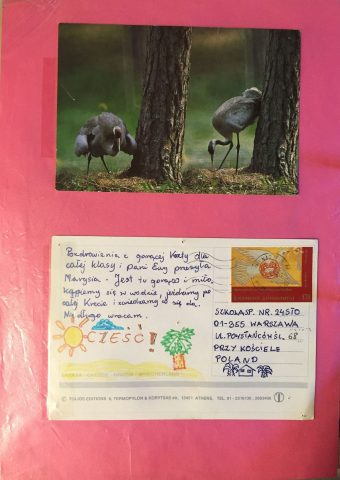 Pozdrowienia z gorącej Krety dla
całej klasy i Pani Ewy przesyła
Marysia. Jest tu gorąco i miło.
Kąpiemy się w wodzie, jeździmy po
całej Krecie i zwiedzamy co się da.
długo wracam.
CZEŚĆ!
SZKOŁA SP. NR.
01-365 WARSZAWA
UL. POWSTAŃCÓW ŚL. 68
PRZY KOŚCIELE
POLAND
© TOLIOS EDITIONS 5, TERMOPYLON & KORYTSAS str., 13451 ATHENS, TEL. 01 -